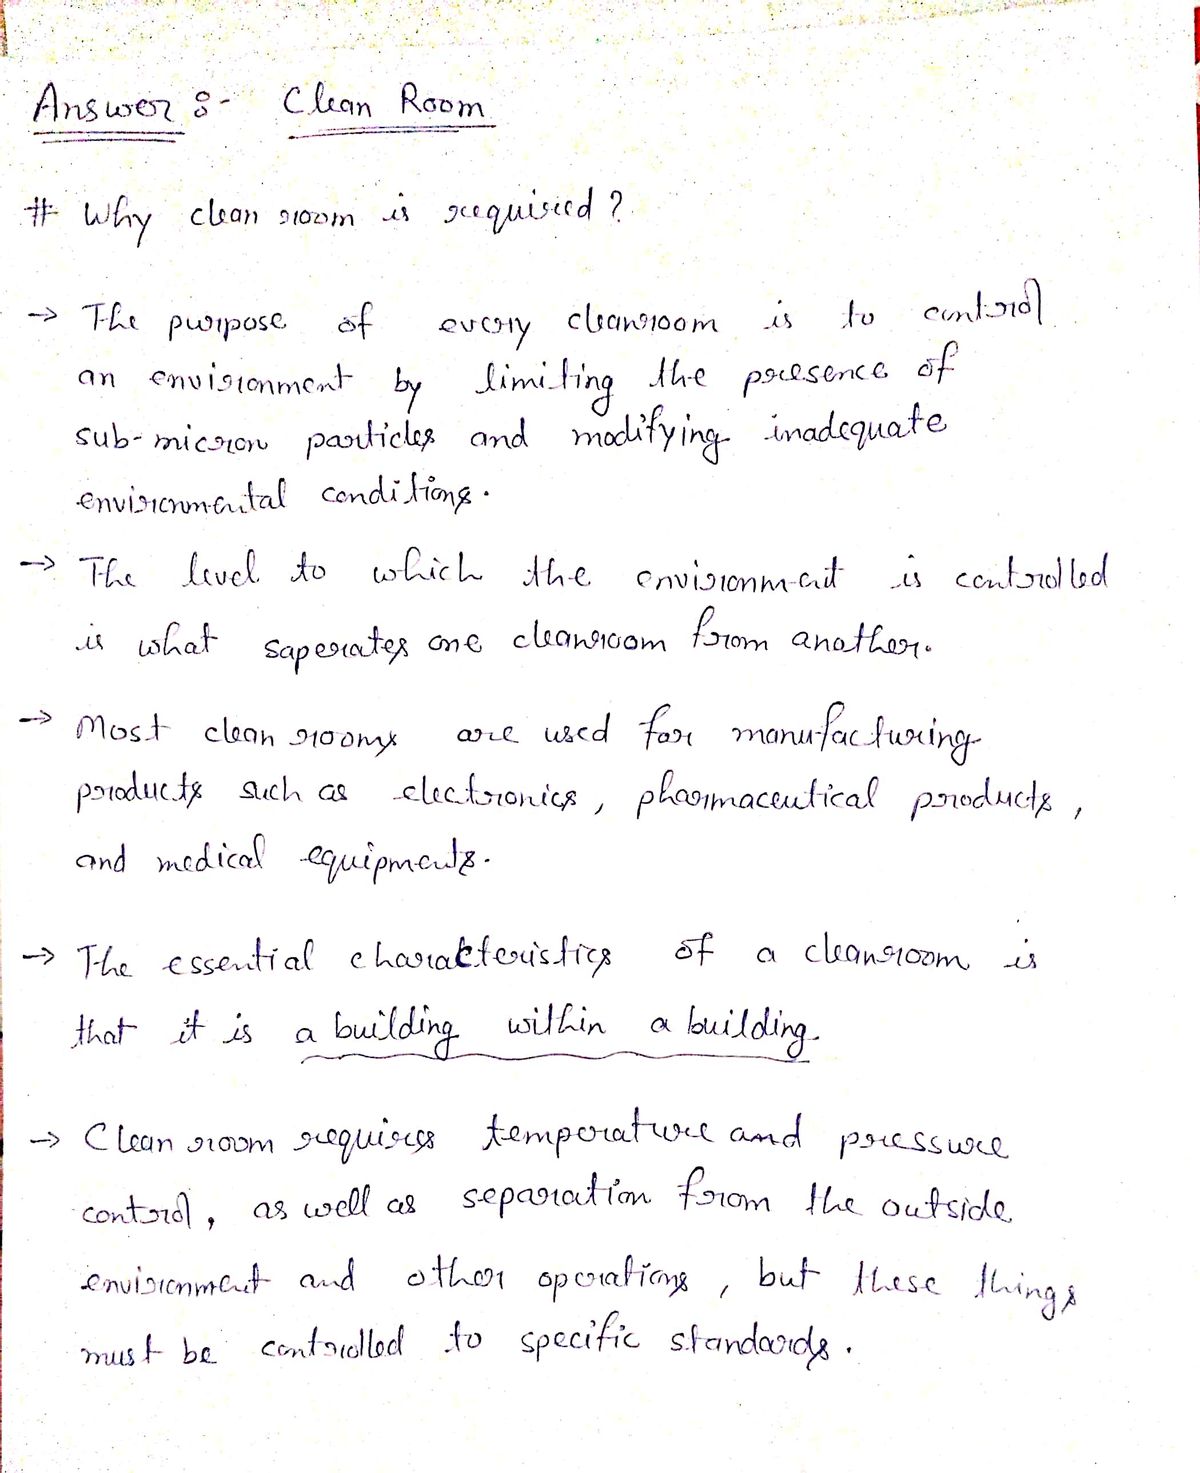 Answer :- Clean Room
# Why clean room is required?
→ The purpose of every cleanroom is to control
an environment by limiting the presence of
sub-micron particles and modifying inadequate
environmental conditions.
→ The level to which the environment is controlled
is what saperates one cleanroom from another.
→ Most clean rooms are used for manufacturing
products such as electronics, pharmaceutical products,
and medical equipments.
→ The essential charakteristics of a cleanroom is
that it is a building within a building.
→ Clean room requires temperature and pressure
control, as well as separation from the outside
environment and other operations, but these things
must be controlled to specific standards.